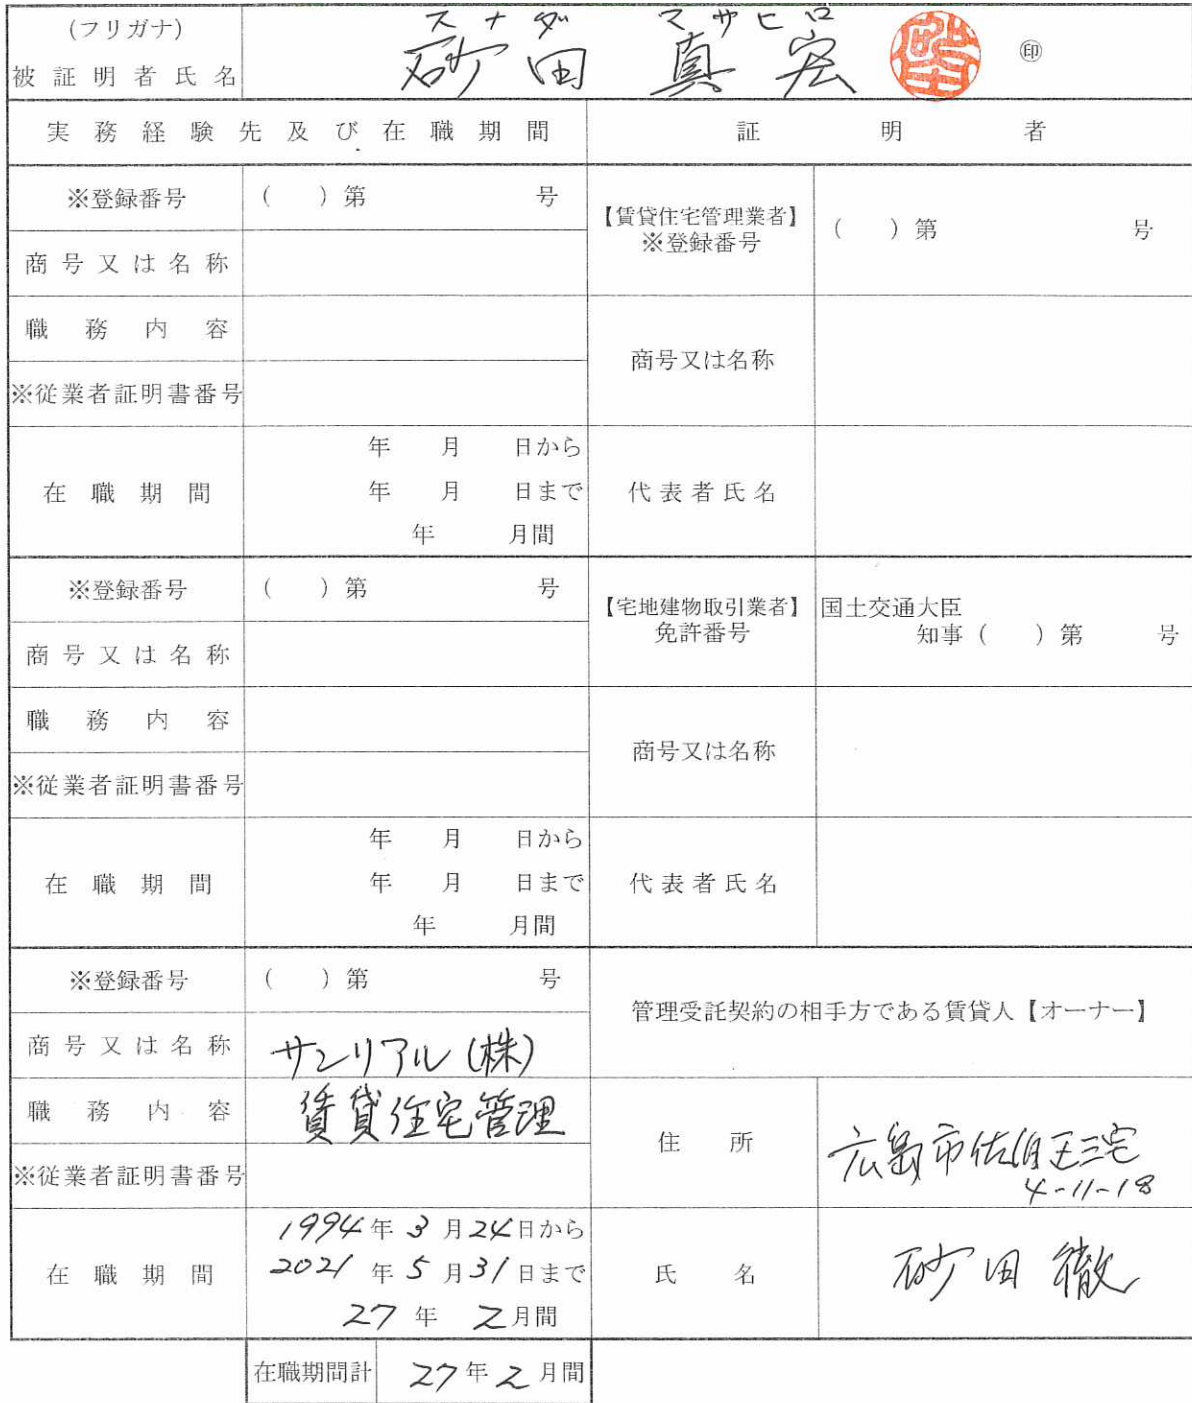 (フリガナ) スナダ マサヒロ
被証明者氏名 砂田 真宏 ㊞
実務経験先及び在職期間 証明者
※登録番号 ( )第 号
【賃貸住宅管理業者】
※登録番号 ( )第 号
商号又は名称
職務内容
商号又は名称
※従業者証明書番号
在職期間 年 月 日から
年 月 日まで
年 月間
代表者氏名
※登録番号 ( )第 号
【宅地建物取引業者】
免許番号
国土交通大臣
知事( )第 号
商号又は名称
職務内容
商号又は名称
※従業者証明書番号
在職期間 年 月 日から
年 月 日まで
年 月間
代表者氏名
※登録番号 ( )第 号
管理受託契約の相手方である賃貸人【オーナー】
商号又は名称 サンリアル(株)
職務内容 賃貸住宅管理
※従業者証明書番号
住所 広島市佐伯区三宅
4-11-18
在職期間 1994年3月24日から
2021年5月31日まで
27年2月間
氏名 砂田徹
在職期間計 27年2月間